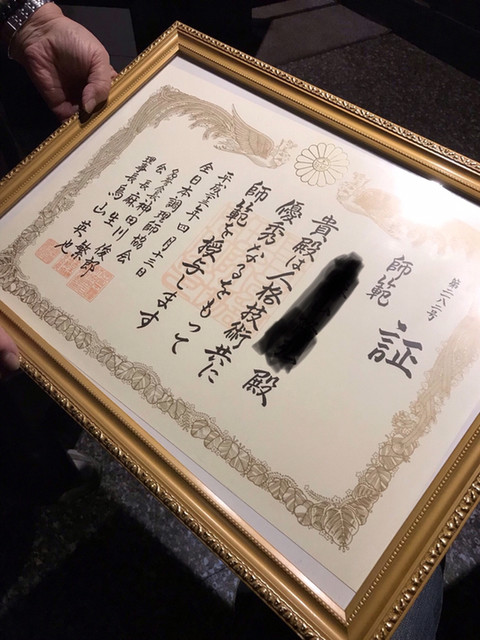 第二八二号
師範 証
殿
貴殿は人格技術共に
優秀なるをもって
師範を授与します
平成 年四月十三日
全日本調理師協会
名誉会長 神田川 俊郎
会長 麻生 繁
理事長 鳥山 英也